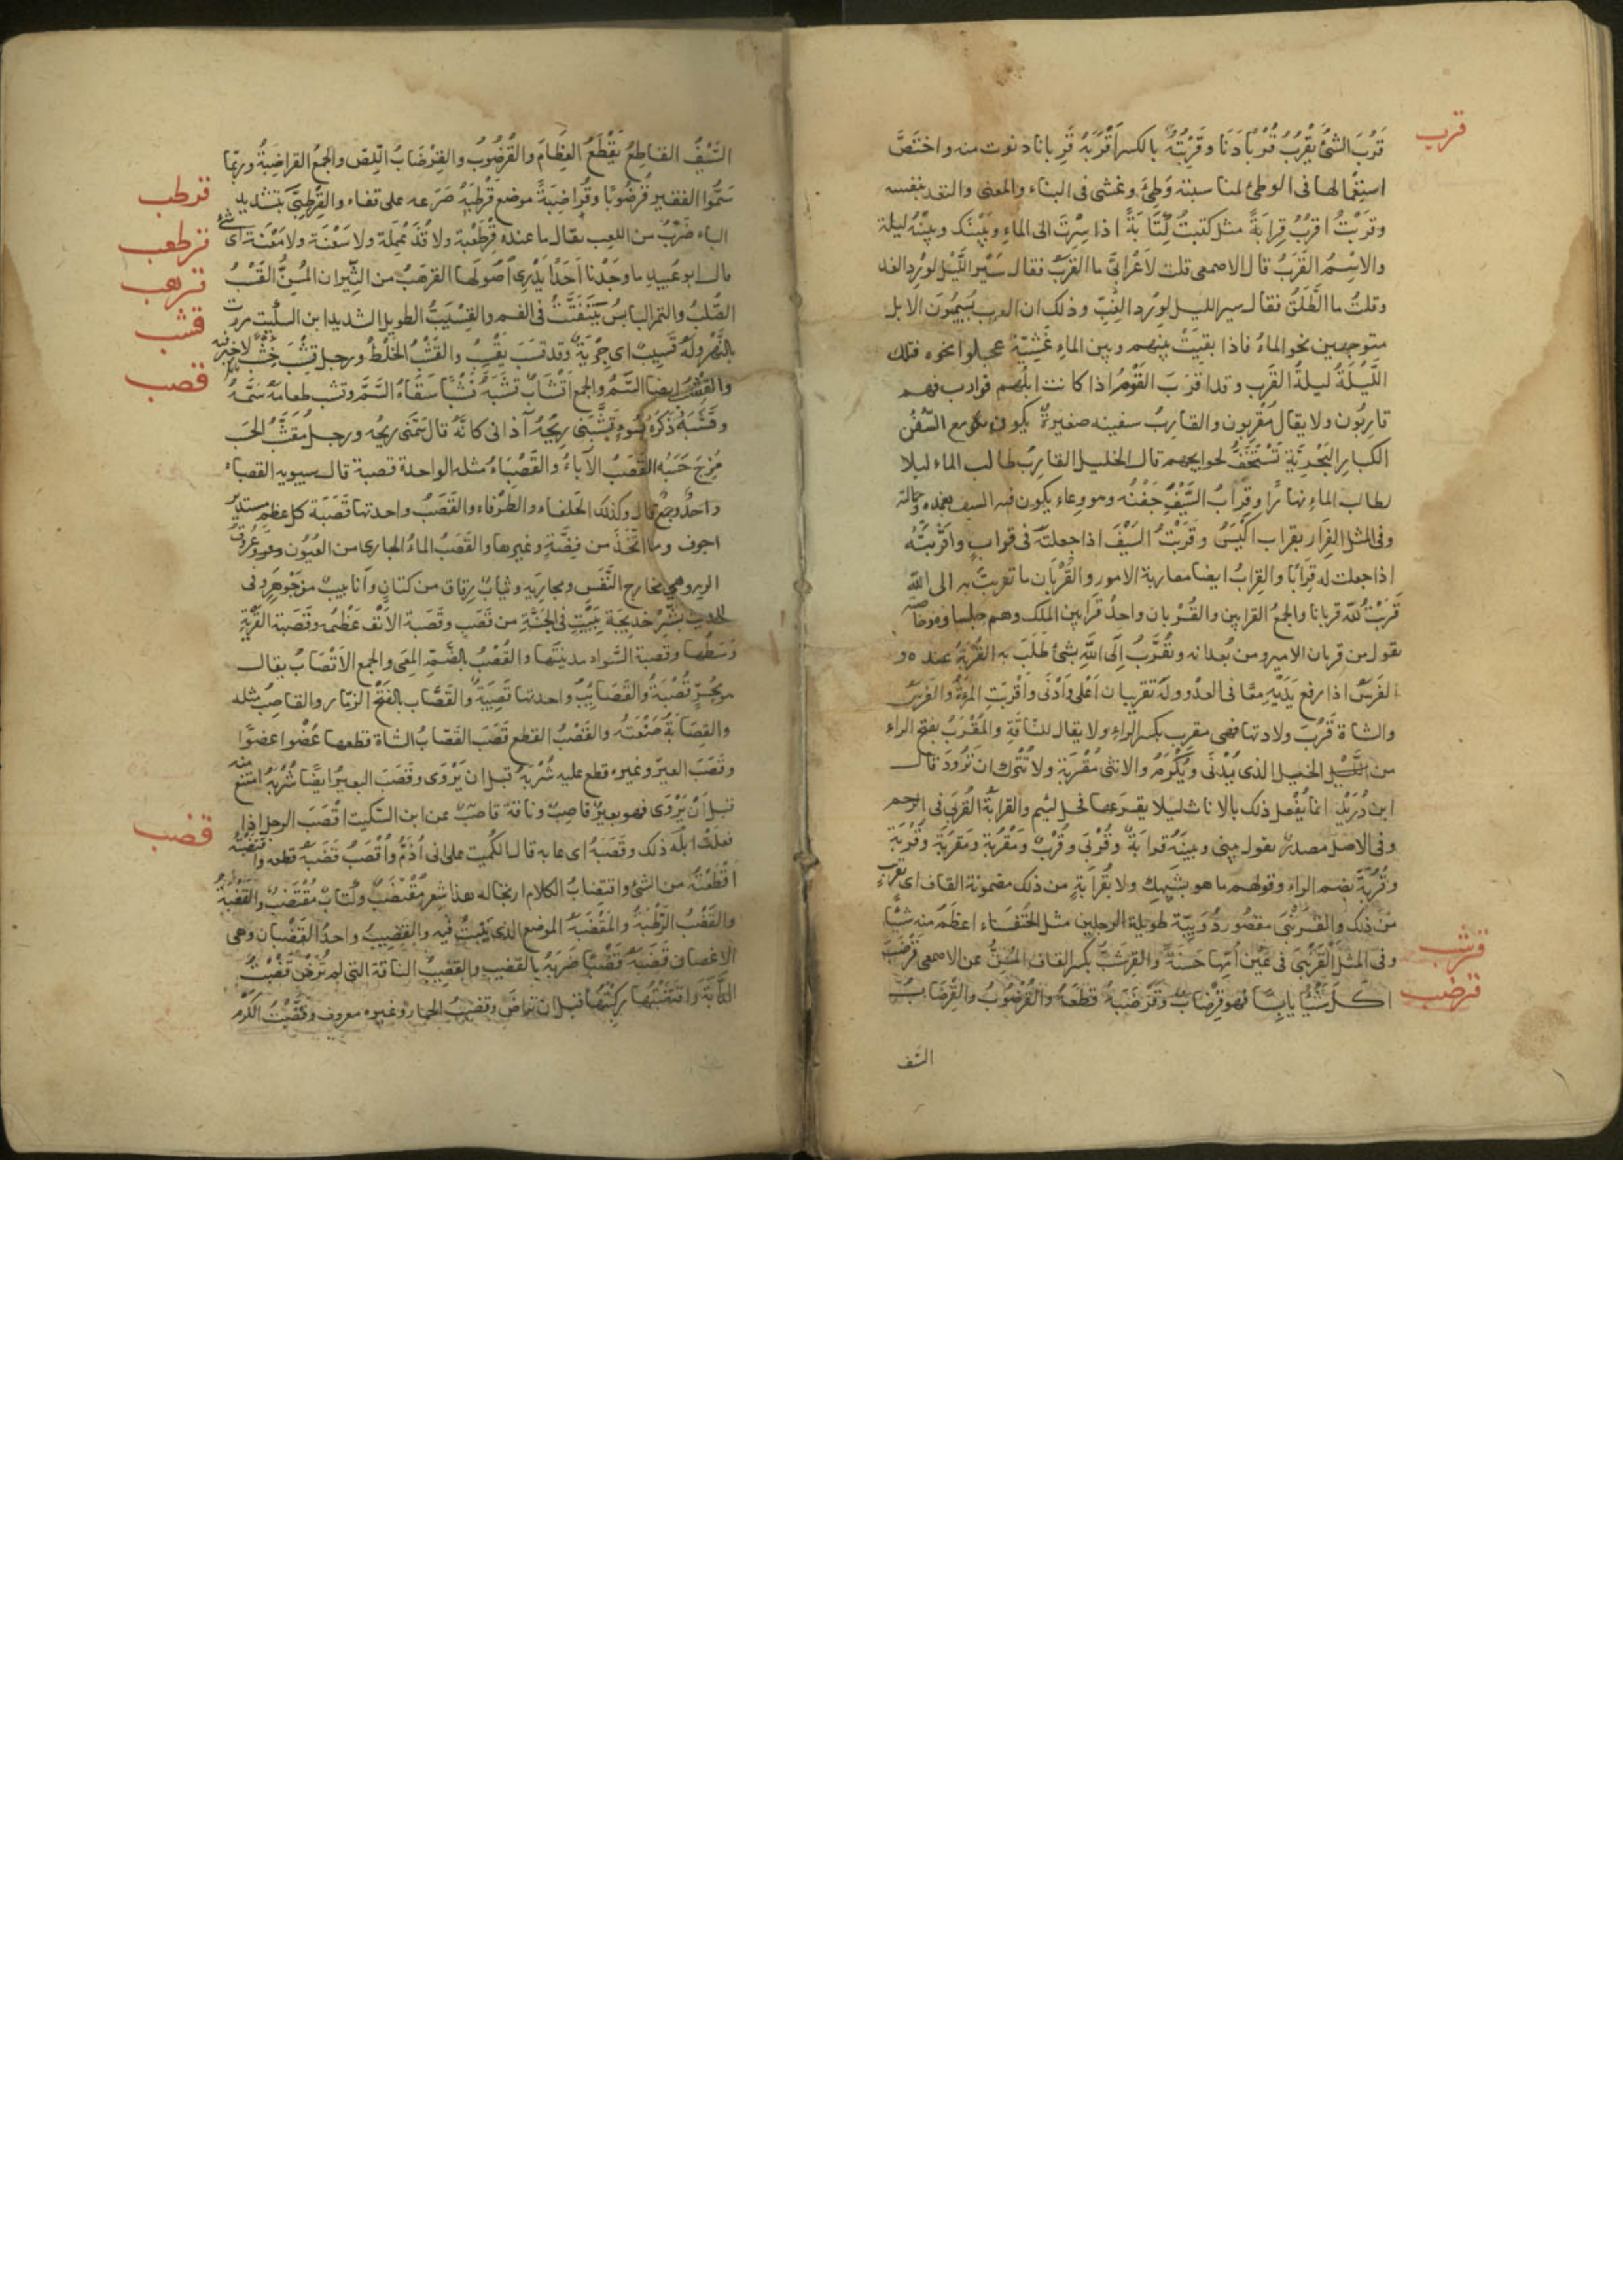 قرب
قَرُبَ الشئُ يَقْرُبُ قُرْبًا دَنَا وقَرِبْتُهُ بالكسر اَقْرَبُهُ قِرْبانا دنوت منه واختَصَّ
استِعْمالها فى الوطئ لمناسبته وَطِئَ وغشى فى البناء والمعنى والتعد بنفسه
وقَرَبْتُ اقرُبُ قِرابَةً مثل كتبتُ كِتَابَةً اذا سِرْتَ الى الماءِ وبَيْنَك وبينَهُ ليلة
والاِسْمُ القَرَبُ قال الاصمعى قلت لاَعْرابىٍّ ما القَرَبُ فقال سَيْر اللَّيْل لوِرْدِ الغد
وقلتُ ما الطَّلَقُ فقال سير الليل لوِرْدِ الغِبِّ وذلك ان العرب يُسِيمُونَ الابل
متوجهين نحو الماءُ فاذا بقيَتْ بينهم وبين الماءِ عَشِيَّةٌ عجلوا نحوه فتلك
اللَّيْلَةُ ليلةُ القَرَبِ وقد اقرَبَ القَوْمُ اذا كانت ابلُهم قوارب فهم
قارِبُون ولا يقال مُقْرِبون والقارِبُ سفينه صغيرةٌ يكون مع السُّفُن
الكبارِ البَحْرِيَّةِ تُسْتَخَفُّ لحوايجهم قال الخليل القارِبُ طالب الماء ليلا
لطالب الماءِ نهارًا وقِرابُ السَّيْفِ جَفْنُه وهو وعاء يكون فيه السيف بغمده وحمالته
وفى المثل الفِرَار بقراب اَكْيَسُ وقَرَبْتُ السَيْفَ اذا جعلتَهُ فى قِرابٍ واَقْرَبْتُه
اذا جعلت له قِرابًا والقِرابُ ايضا مقاربة الامور والقُرْبان ما تقربت به الى اللّٰه
قَرّبْتُ للّٰه قربانا والجمع القرابين والقُرْبان واحدُ قَرابين الملك وهم جلساوه وخاصته
تقول من قربان الامير ومن بُعدانه وتَقَرَّبُ اِلَى اللّٰهِ بشئ طَلَبَ به القُرْبَةُ عنده و
الفَرَسُ اذا رفع يَدَيْهِ معًا فى العَدْو وله تقريبان اَعْلى وَاَدْنَى وَاَقْرَبَتِ المرءةُ والفَرَسُ
والشاة قَرُبَ ولادتها فهى مقرب بكسر الراء ولا يقال للنّاقَةِ والمُقْرَبُ بفتح الراء
من الخيل الذى يُدْنَى ويُكْرَمُ والانثى مُقْرَبَة ولا تُتْرَك ان تَرُودَ قال
ابن دُرَيْدٍ انما يُفْعل ذلك بالاناث ليلا يقرَعها فحل لئيم والقَرابَةُ القُرْبَى فى الرحم
وفى الاصل مصدر تقول بينى وبينَهُ قَرابَةٌ وقُرْبَى وقُرْبٌ ومَقْرَبَة ومَقْرُبَة وقُرْبَة
وقُرُبَةٌ بضم الراء وقولهم ما هو بشَبِيهِكَ ولا بقُرابَةٍ من ذلك مضمونة القاف اى بقريبٍ
مِّن ذلك والقَرَنْبَى مقصور دُوَيْبَّة طويلة الرجلين مثل الخُنْفَسَاء اعظَم منه شيًا
قرشب
وفى المثل القَرَنْبَى فى عَيْن اُمِّها حَسَنَةٌ والقِرْشَبُّ بكسر القاف المُسِنُّ عن الاصمعى قَرْضَبَ
قرضب
اكل شَيْئًا يابِسًا فهو قِرْضاب وقَرْضَبَهُ قطعَهُ والقُرْضُوبُ والقِرْضَابُ
السّيف
السَّيْفُ القَاطِعُ يَقْطَعُ العِظَامَ والقُرْضُوبُ والقِرْضَابُ اللِّصّ والجمعُ القراضِبَةُ وربّما
قرطب
سَمَّوا الفقير قُرْضُوبًا وقُراضِبَةُ موضع قَرْطَبَهُ صَرَعه على قفاه والقِرْطِبَّى بتشديد
قرطعب
الباء ضَرْبٌ من اللعِب يقال ما عنده قُرْطَعْبة ولا قُذَعْمِلَة ولا سَعْنَة ولا مَعْنَة اى شئ
قرهب
قال ابو عبيد ما وجَدْنا اَحَدًا يَدْرِى اُصُولَها القرهَبُ من الثِّيران المُسِنُّ القَسْبُ
قشب
الصُّلْبُ والتمر اليابسُ يَتَفَتَّتُ فى الفم والقَسْيَبُّ الطويل الشديد ابن السكّيت مررت
بالنَّهْرِ ولَهُ قَسِيبٌ اى جِرْيَةٌ وقد قسَبَ يَقْسِبُ والقَشْبُ الخَلْطُ ورجل قِشْبٌ خِشْبٌ لا خيرَ فيه
قصب
والقِشْبُ ايضا السَّمُّ والجمع اَقْشَابٌ قشَبَهُ قَشْبًا سَقَاهُ السَّمَّ وقشب طعامَهُ سَمَّهُ
وقَشَبَهُ ذَكَرَهُ بسُوءٍ وقَشَّبَنى رِيحُهُ آذانى كانَّهُ قال سَمَّنى ريحُه ورجل مُقَشَّبُ الحَسَبِ
مُزِجَ حَسَبُه القَصَبُ الاَباءُ والقَصْبَاءُ مثله الواحدة قصبة قال سيبويه القصباء
واحدٌ وجمعٌ قال وكذلك الحلفاء والطرْفاء والقَصَبُ واحدتها قَصَبَة كل عظمٍ مستدير
اجوف وما اتّخِذَ من فِضَّةٍ وغيرها والقَصَبُ الماءُ الجارى من العُيُون وهو وعُروقُ
الريه وهى مخارج النَّفَس ومجارِيَه وثيابٌ رِقاق من كتانٍ واَنابيبٌ من جَوْهَرٍ وفى
الحديث بَشِّرْ خديجة بِبَيْتٍ فى الجَنَّةِ من قصَبٍ وقَصَبة الاَنْف عَظْمُه وقَصَبَة القَرْيَةِ
وَسَطُها وقصبة السَّواد مدينتُها والقُصْبُ بالضَّمِّ المِعَى والجمع الاَقْصَابُ يقال
هو يَجُرُّ قُصْبَهُ والقَصَايبُ واحدتها قَصِيبَةٌ والقَصَّاب بالفَتْح الزمّار والقاصِبُ مثله
والقِصَابَةُ صَنْعَتُه والقَصْبُ القطع قَصَبَ القَصَّابُ الشاة قطعها عُضْوا عضوًا
وقصَبَ العيرَ وغيره قطع عليه شُرْبَهُ قبل ان يَرْوَى وقَصَبَ البعيرُ ايضًا شُرْبَهُ امتنع منه
قبل اَنْ يَرْوَى فهو بعيرٌ قاصِبٌ وناقة قاصبٌ عن ابن السّكيت اقصَبَ الرجل اذا
قضب
فعلَتْ ابلُه ذلك وقَصَبَهُ اى عابه قال الكُميت على انى اُذَمُّ واُقْصَبُ قَضَبَهُ قطعه واقتَضَبْتُهُ
اقتطَعْتُهُ من الشئ واقتِضابُ الكلام ارتجاله هذا شعر مُقْتَضَبٌ وكتابٌ مُقْتَضَبٌ والقَضْبَةُ
والقَضْبُ الرَّطْبَةُ والمَقْضَبَه الموضع الذى يَنْبُتُ فيه والقَضِيبُ واحدُ القُضْبان وهى
الاغصان قَضَبَهُ قَضْبًا ضَرَبَهُ بالقضيب والقَضِيبُ الناقة التى لم تُرَضْ قَضَبْتُ
الدّابَّةَ واقتَضَبْتُها رَكِبْتُها قبل ان تراضَ وقضيبُ الحمار وغيره معروف وقَضَّبْتُ الكَرْم